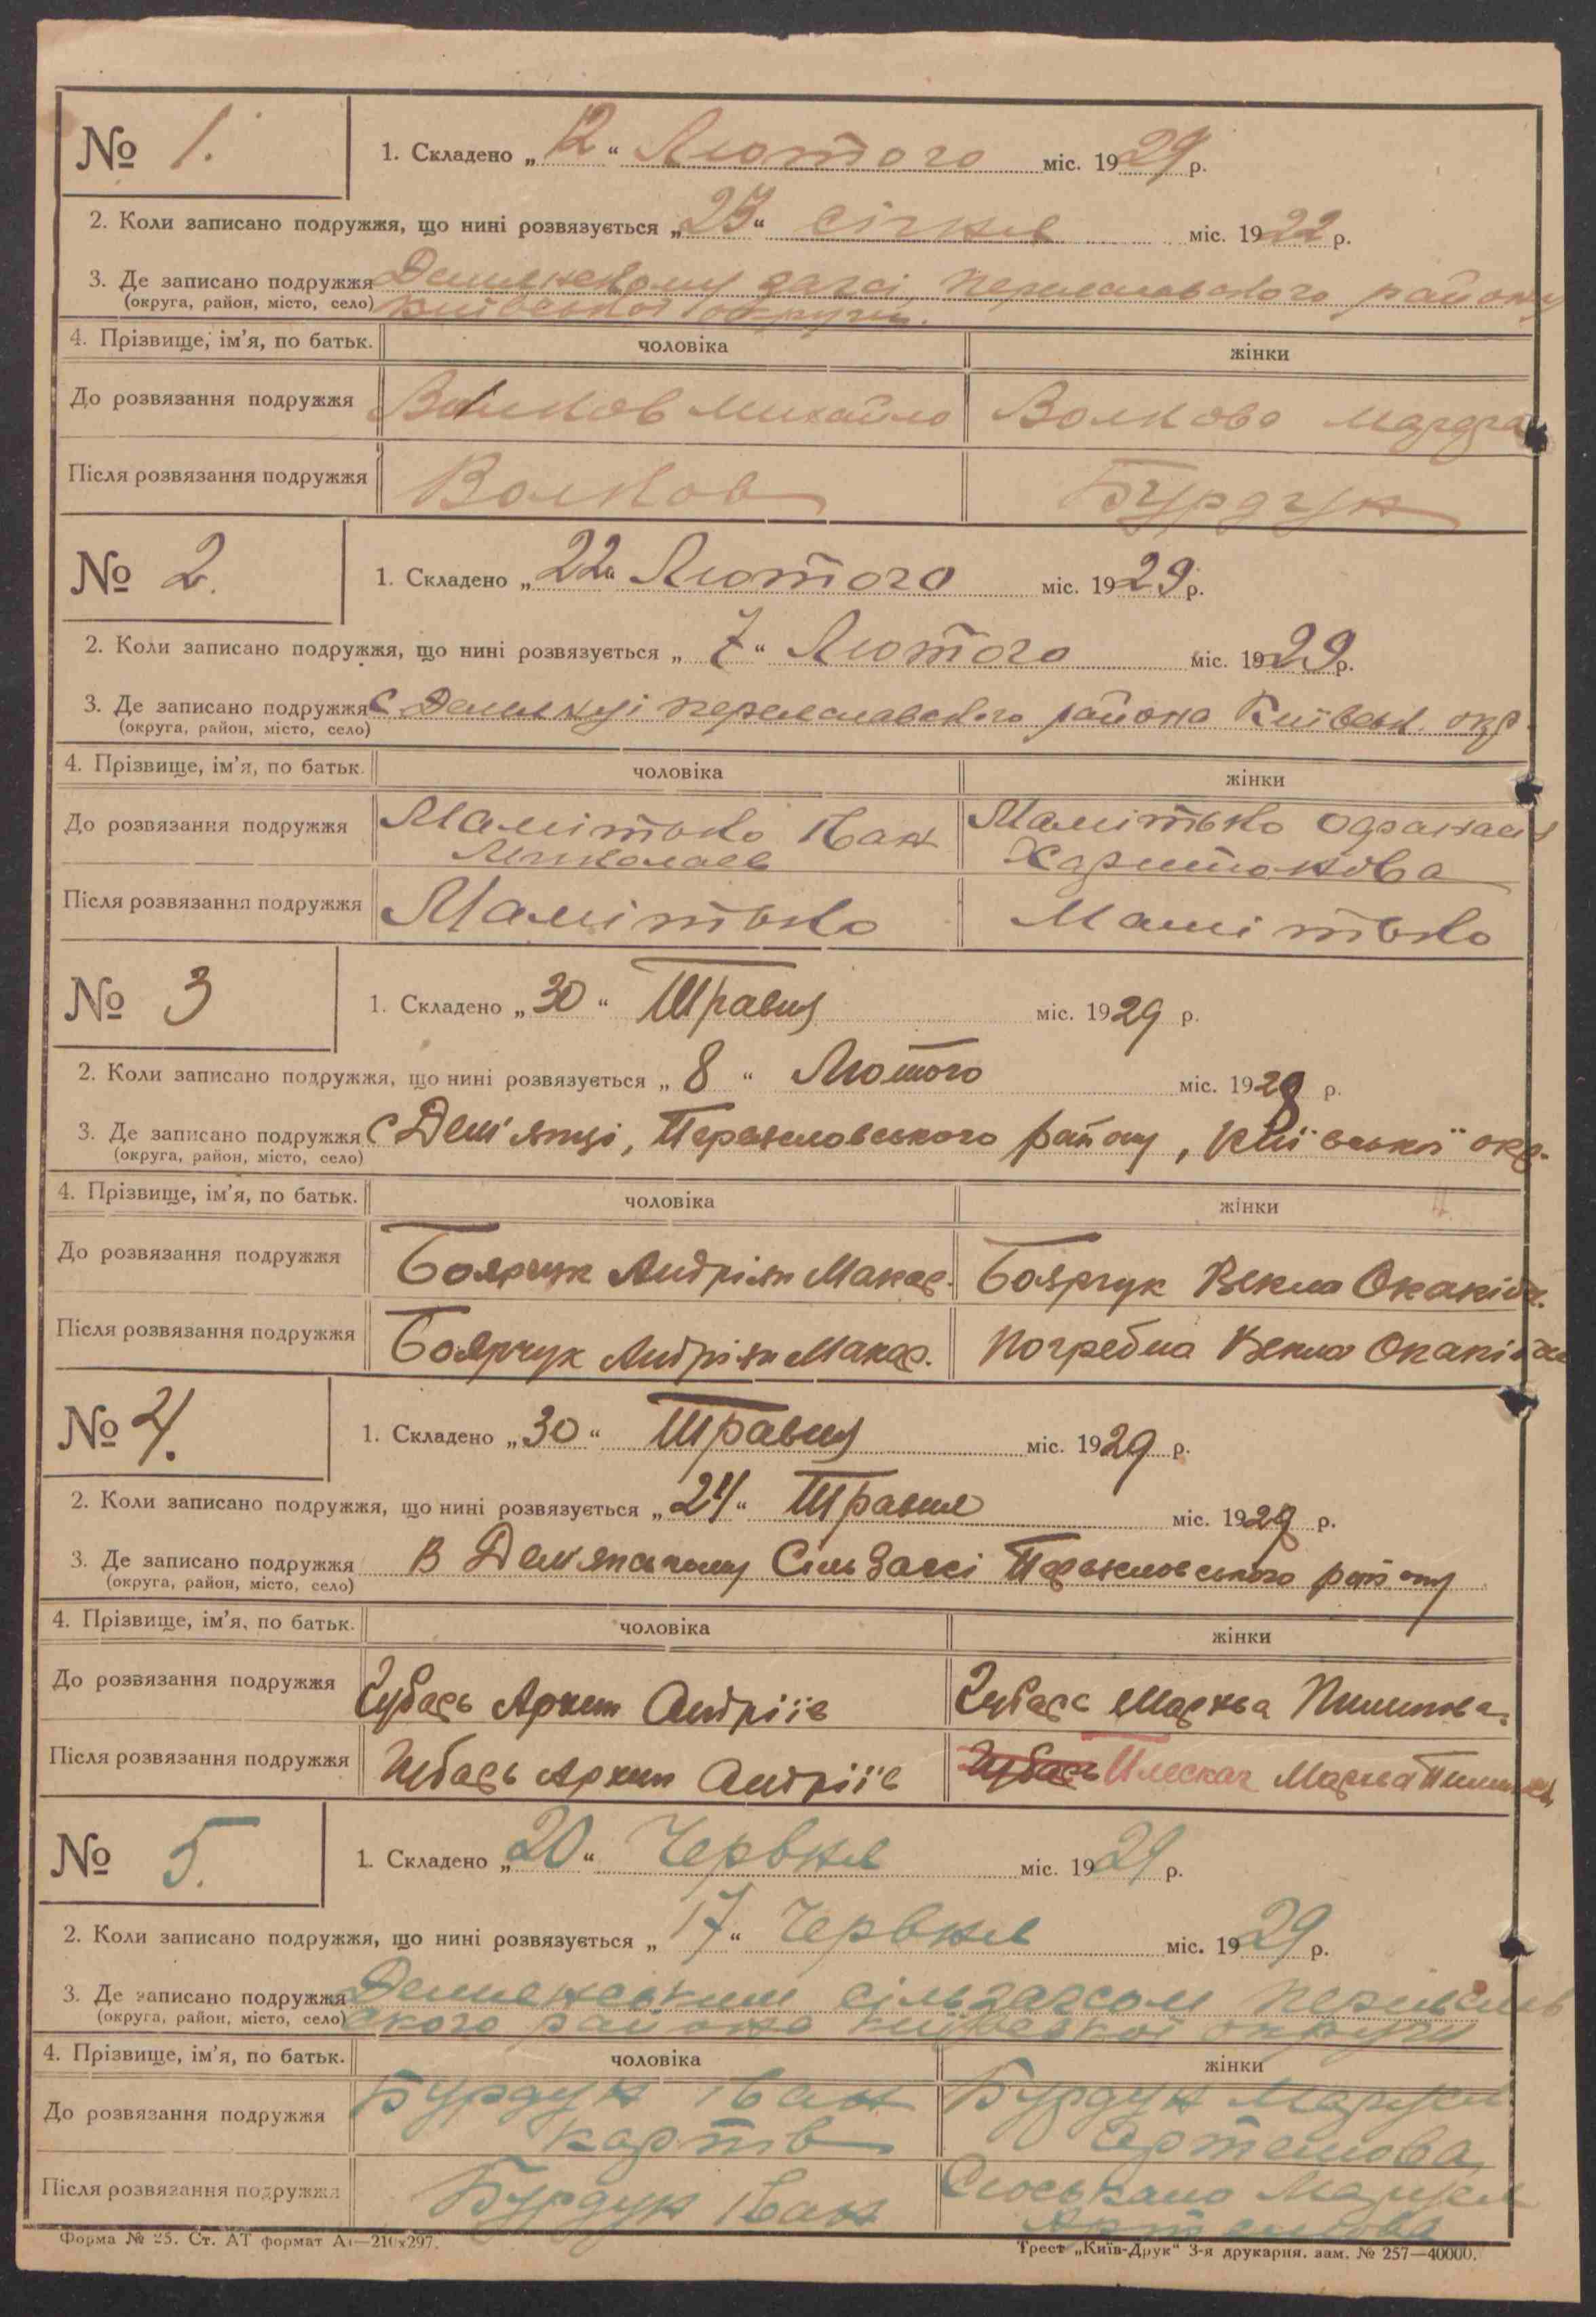 № 1. 1. Складено „12“ Лютого міс. 1929 р.
2. Коли записано подружжя, що нині розвязується „23“ січня міс. 1922 р.
3. Де записано подружжя загсі Переяславського району
(округа, район, місто, село) Київської округи.
4. Прізвище, ім’я, по батьк. чоловіка жінки
До розвязання подружжя Волков Михайло Волкова
Після розвязання подружжя Волков Бурдчук
№ 2. 1. Складено „22“ Лютого міс. 1929 р.
2. Коли записано подружжя, що нині розвязується „7“ Лютого міс. 1929 р.
3. Де записано подружжя с Демянці Переяславского района Київськ. окр.
(округа, район, місто, село)
4. Прізвище, ім’я, по батьк. чоловіка жінки
До розвязання подружжя Малітько Іван Малітько
Миколаев Харитонова
Після розвязання подружжя Малітько Малітько
№ 3 1. Складено „30“ Травня міс. 1929 р.
2. Коли записано подружжя, що нині розвязується „8“ Лютого міс. 1928 р.
3. Де записано подружжя с Дем'янці, Переяславського району, Київської окр.
(округа, район, місто, село)
4. Прізвище, ім’я, по батьк. чоловіка жінки
До розвязання подружжя Боярчук Андріян Макар. Боярчук Векла
Після розвязання подружжя Боярчук Андріян Макар. Погребна Векла
№ 4. 1. Складено „30“ Травня міс. 1929 р.
2. Коли записано подружжя, що нині розвязується „24“ Травня міс. 1929 р.
3. Де записано подружжя В Дем'янському Сіль Загсі Переяславського району
(округа, район, місто, село)
4. Прізвище, ім’я, по батьк. чоловіка жінки
До розвязання подружжя Чубарь Архип Андріїв Чубарь Марква Пилипова.
Після розвязання подружжя Чубарь Архип Андріїв Чубарь Плескач
№ 5. 1. Складено „20“ Червня міс. 1929 р.
2. Коли записано подружжя, що нині розвязується „17“ Червня міс. 1929 р.
3. Де записано подружжя Демянським сільзагсом Переяслав
(округа, район, місто, село) ского района Київської округи
4. Прізвище, ім’я, по батьк. чоловіка жінки
До розвязання подружжя Бурдук Іван Бурдук Маруся
Карпів Артемова
Після розвязання подружжя Бурдук Іван Маруся
Артемова
Форма № 25. Ст. АТ формат А4—210х297. Трест „Київ-Друк“ 3-я друкарня. зам. № 257—40000.